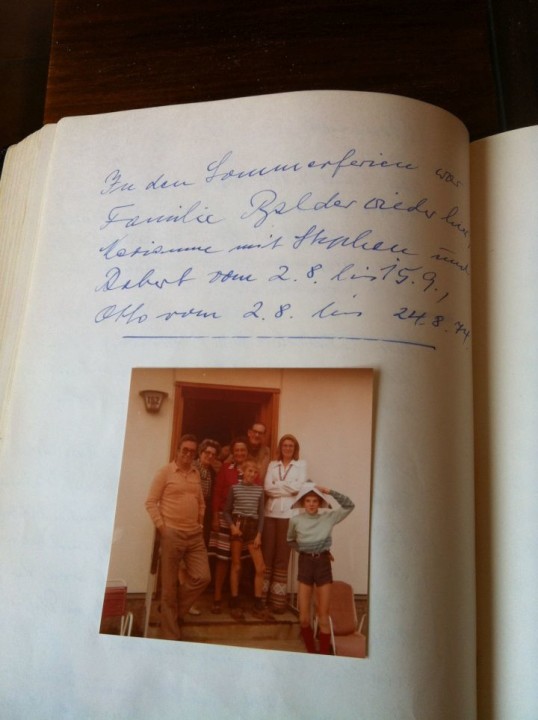 In den Sommerferien war
Familie Balder wieder hier,
Marianne mit Stephen und
Robert vom 2.8. bis 15.9.,
Otto vom 2.8. bis 24.8.74.